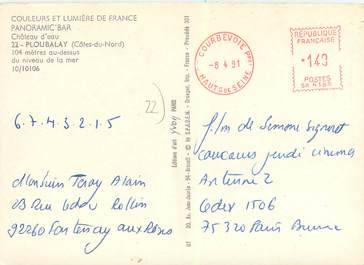 COULEURS ET LUMIÈRE DE FRANCE
PANORAMIC'BAR
Château d'eau
22 - PLOUBALAY (Côtes-du-Nord)
104 mètres au-dessus
du niveau de la mer
10/10106
22
6.7.4.3.2.1.5
Monsieur Teray Alain
23 Rue Ledru Rollin
92260 Fontenay aux Roses
Editions d'art Yvon PARIS
COURBEVOIE
-8 4 91
HAUTS DE SEINE
RÉPUBLIQUE
FRANÇAISE
143
POSTES
f/m de Simone Signoret
concours jeudi cinéma
Antenne 2
Cedex 1506
75320 Paris Brune